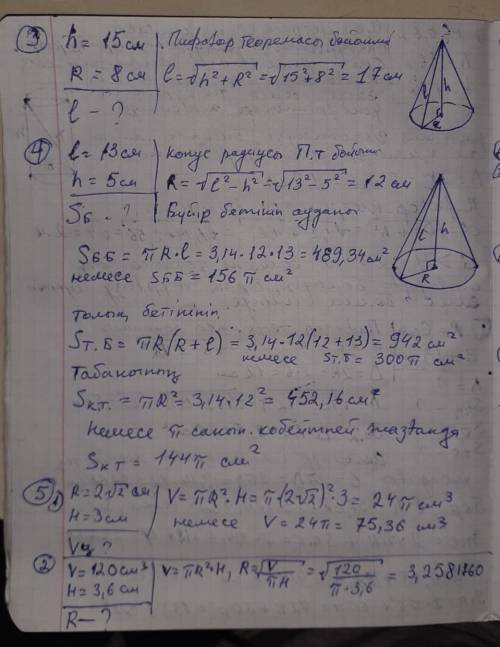 ③ h = 15 см | Пифагор теоремасы бойынша
R = 8 см | l = √h² + R² = √15² + 8² = 17 см
l - ?
④ l = 13 см | Конус радиусы П.т бойынша
h = 5 см | R = √l² - h² = √13² - 5² = 12 см
Sб - ? | Бүйір бетінің ауданы
Sбб = πR·l = 3,14·12·13 = 489,34 см²
немесе Sбб = 156 π см²
толық бетінің
Sт.б = πR(R + l) = 3,14·12(12+13) = 942 см²
немесе Sт.б = 300π см²
Табанының
Sк.т. = πR² = 3,14·12² = 452,16 см²
немесе π санын көбейтпей жазғанда
Sкт = 144π см²
⑤ 1) R = 2√2 см | V = πR²·H = π(2√2)²·3 = 24π см³
H = 3 см | немесе V = 24π = 75,36 см³
Vц ?
② V = 120 см³ | V = πR²·H, R = √V/πH = √120/π·3,6 = 3,2581760
H = 3,6 см
R - ?